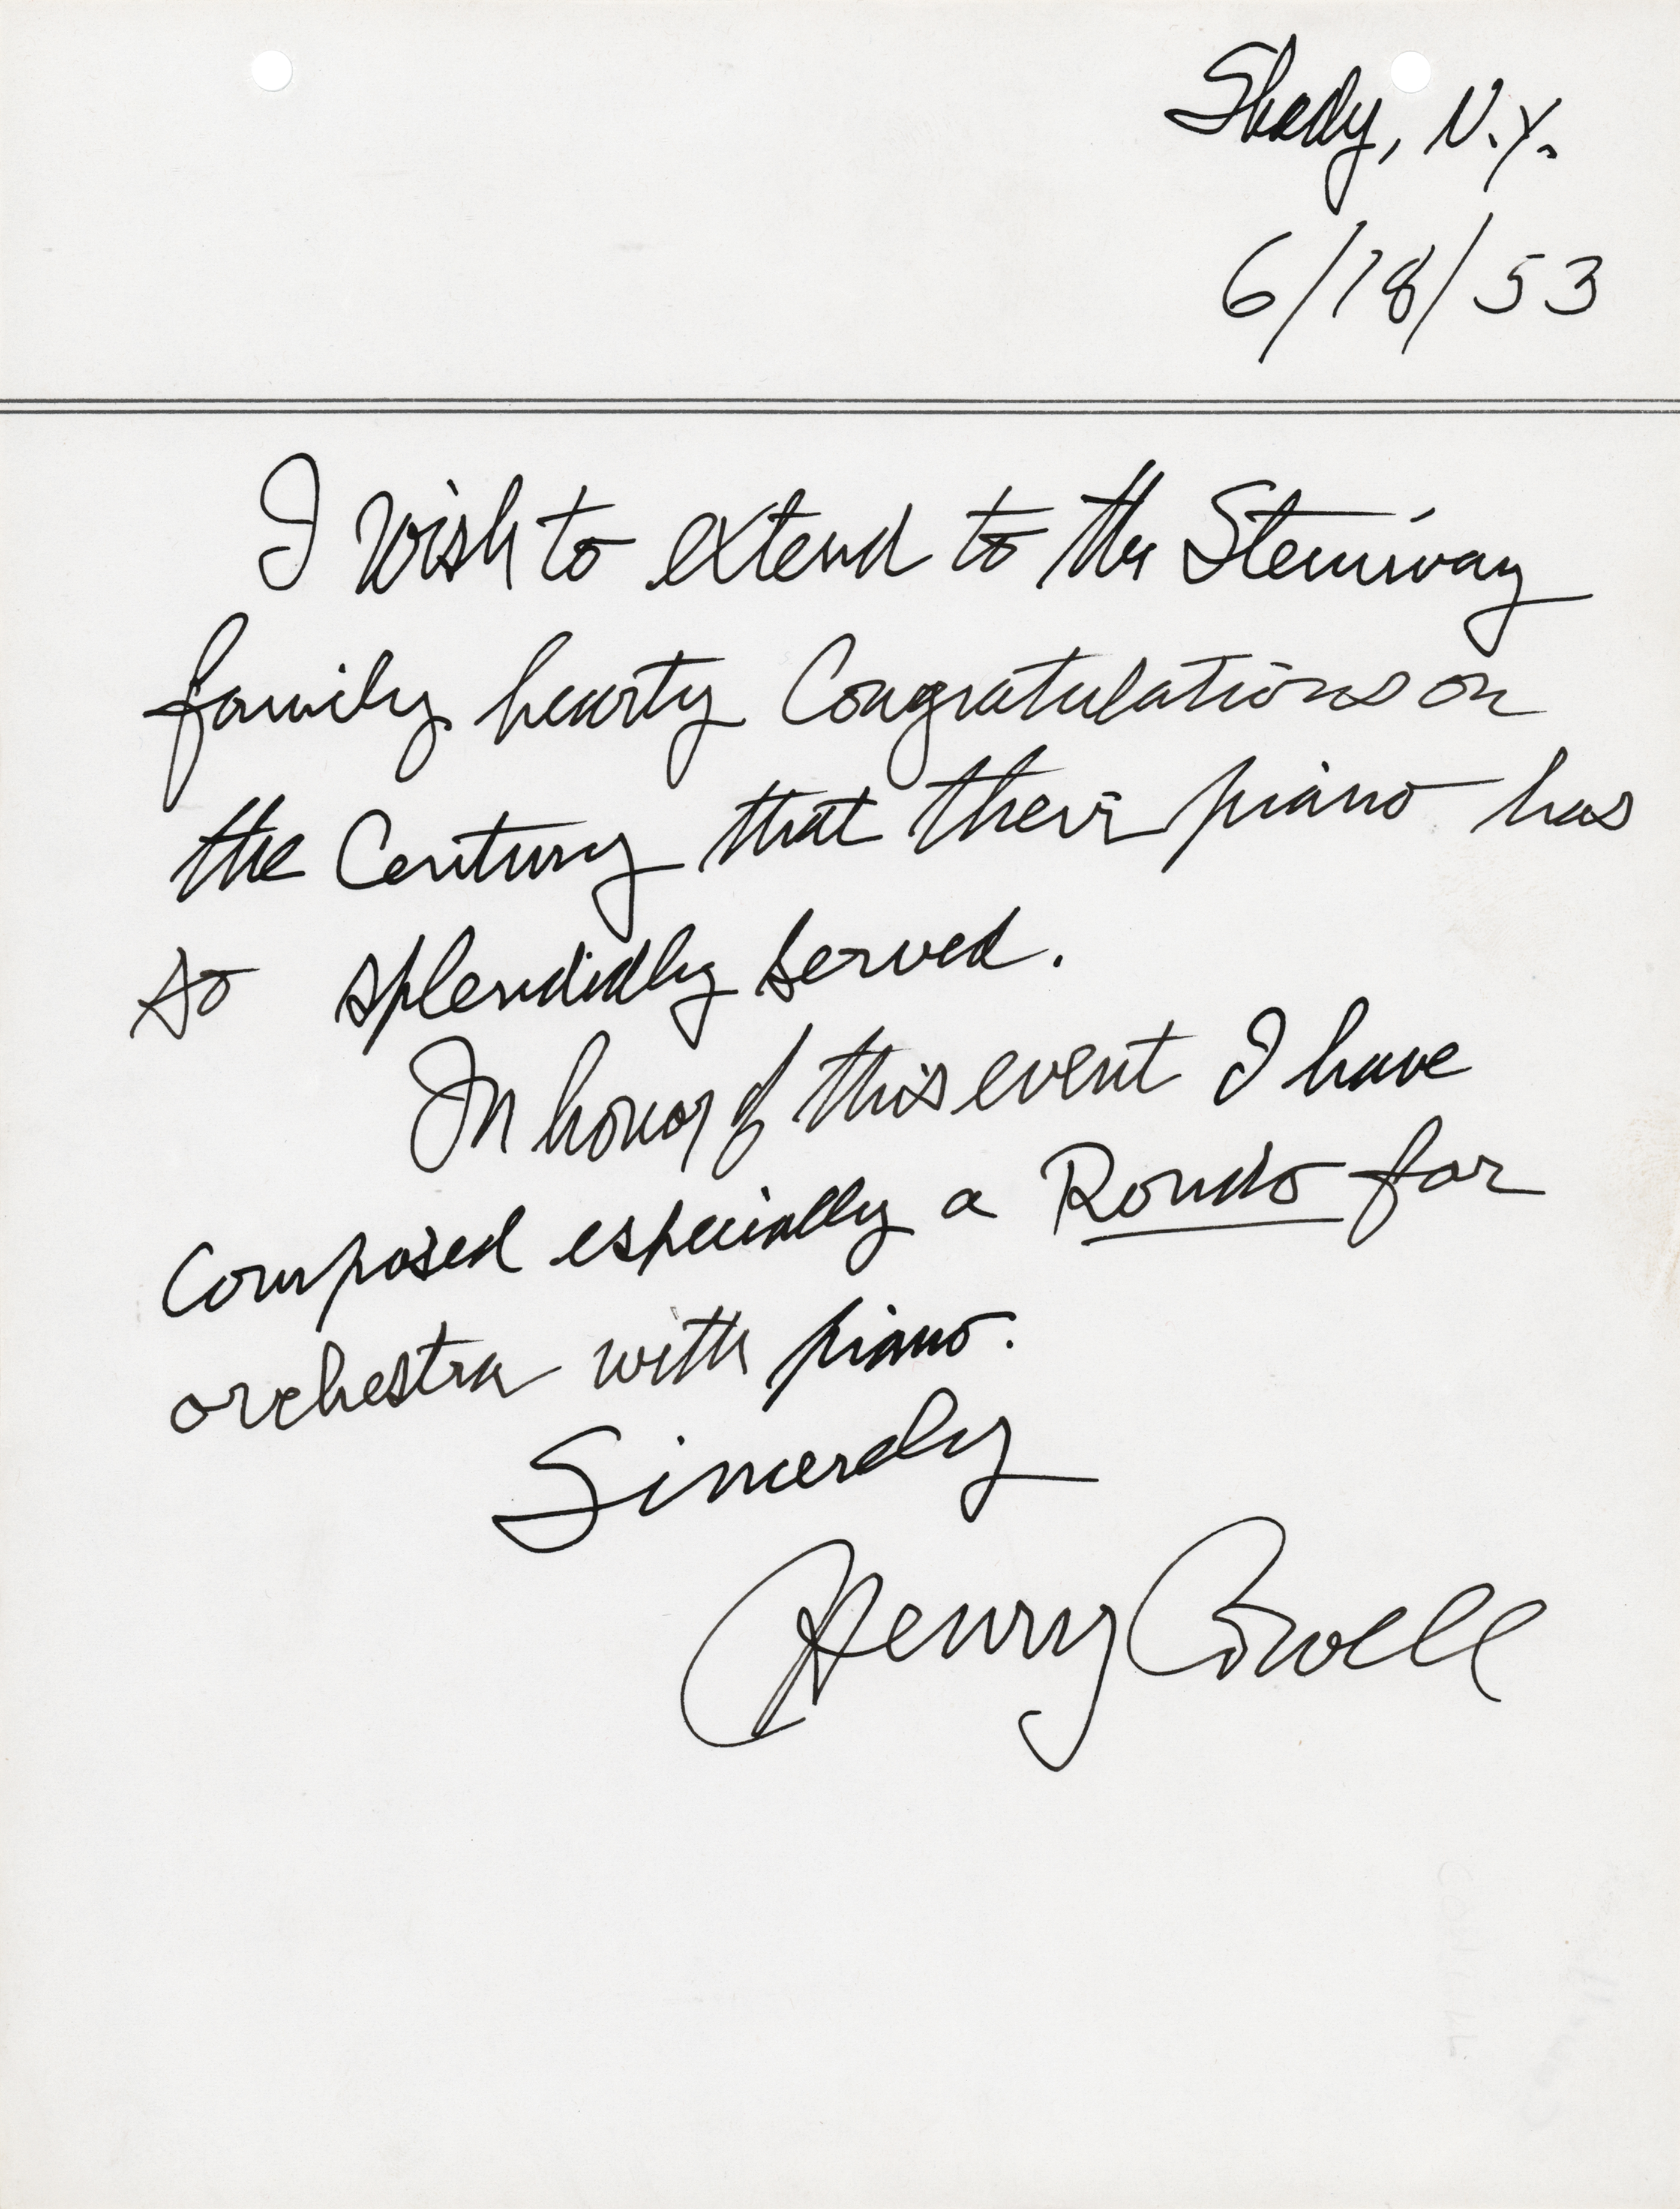 Shady, N.Y.
6/18/53
I wish to extend to the Steinway
family hearty Congratulations on
the Century that their piano has
so splendidly served.
In honor of this event I have
composed especially a Rondo for
orchestra with piano.
Sincerely
Henry Cowell